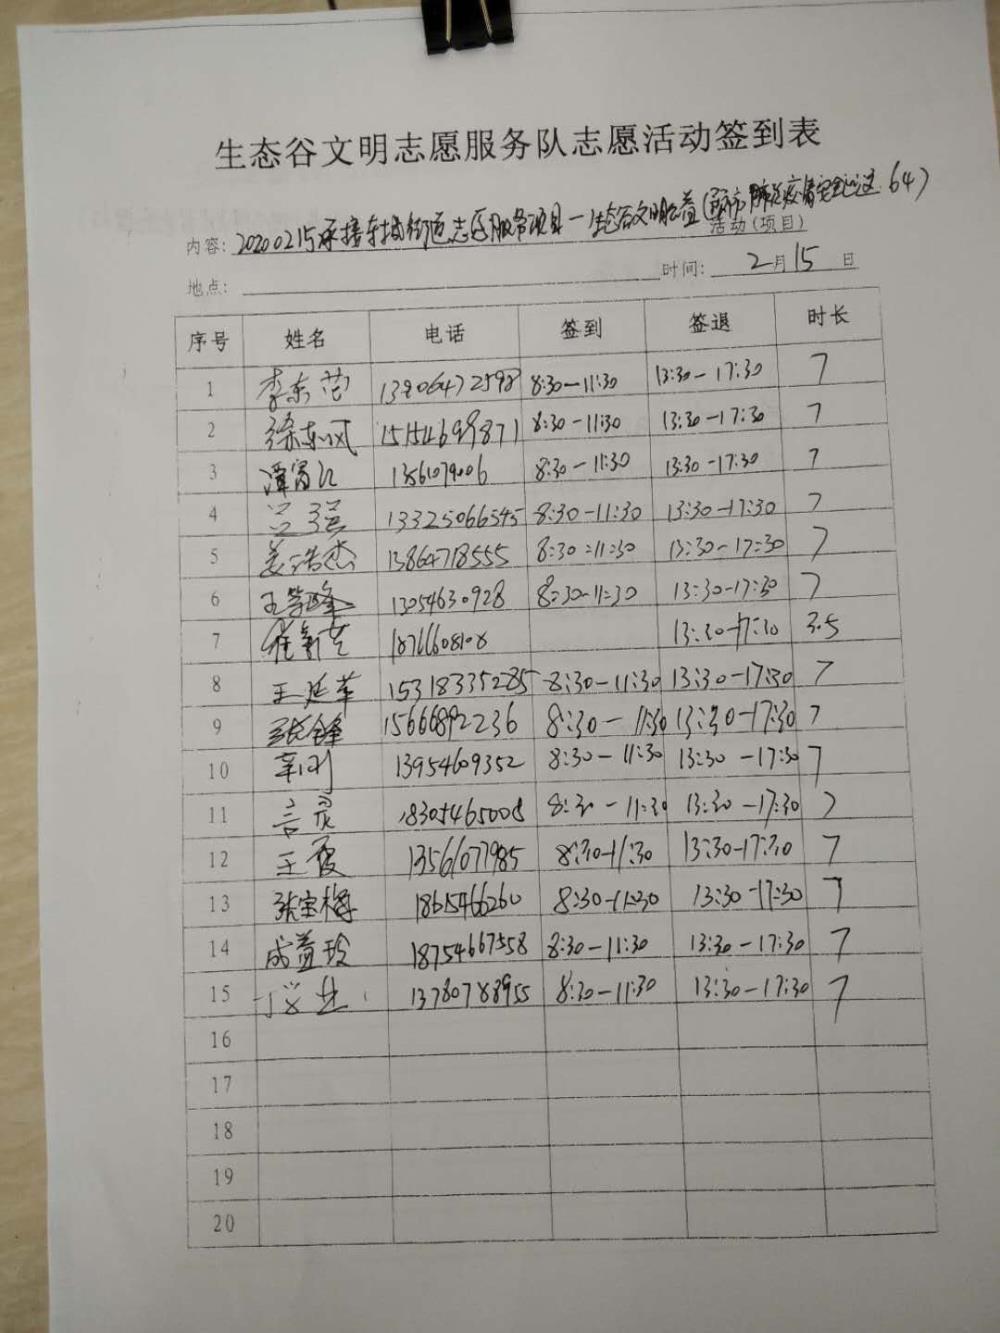 生态谷文明志愿服务队志愿活动签到表
内容: 20200215承接东城街道志愿服务项目一生态谷文明公益 活动(项目) 64)
地点: 时间: 2月15日
序号 姓名 电话 签到 签退 时长
1 李东 8:30-11:30 13:30-17:30 7
2 徐东风 15154699871 8:30-11:30 13:30-17:30 7
3 谭富江 13561079006 8:30-11:30 13:30-17:30 7
4 吕强 13325066545 8:30-11:30 13:30-17:30 7
5 姜浩杰 13864718555 8:30-11:30 13:30-17:30 7
6 王学峰 13054630928 8:30-11:30 13:30-17:30 7
7 崔新芝 18766608108 13:30-17:30 3.5
8 王延革 15318335285 8:30-11:30 13:30-17:30 7
9 张锋 15666892236 8:30-11:30 13:30-17:30 7
10 辛刚 13954609352 8:30-11:30 13:30-17:30 7
11 言灵 18305465008 8:30-11:30 13:30-17:30 7
12 王霞 13561077985 8:30-11:30 13:30-17:30 7
13 张宝梅 1865466260 8:30-11:30 13:30-17:30 7
14 成益玲 18754667558 8:30-11:30 13:30-17:30 7
15 丁 13780788955 8:30-11:30 13:30-17:30 7
16
17
18
19
20